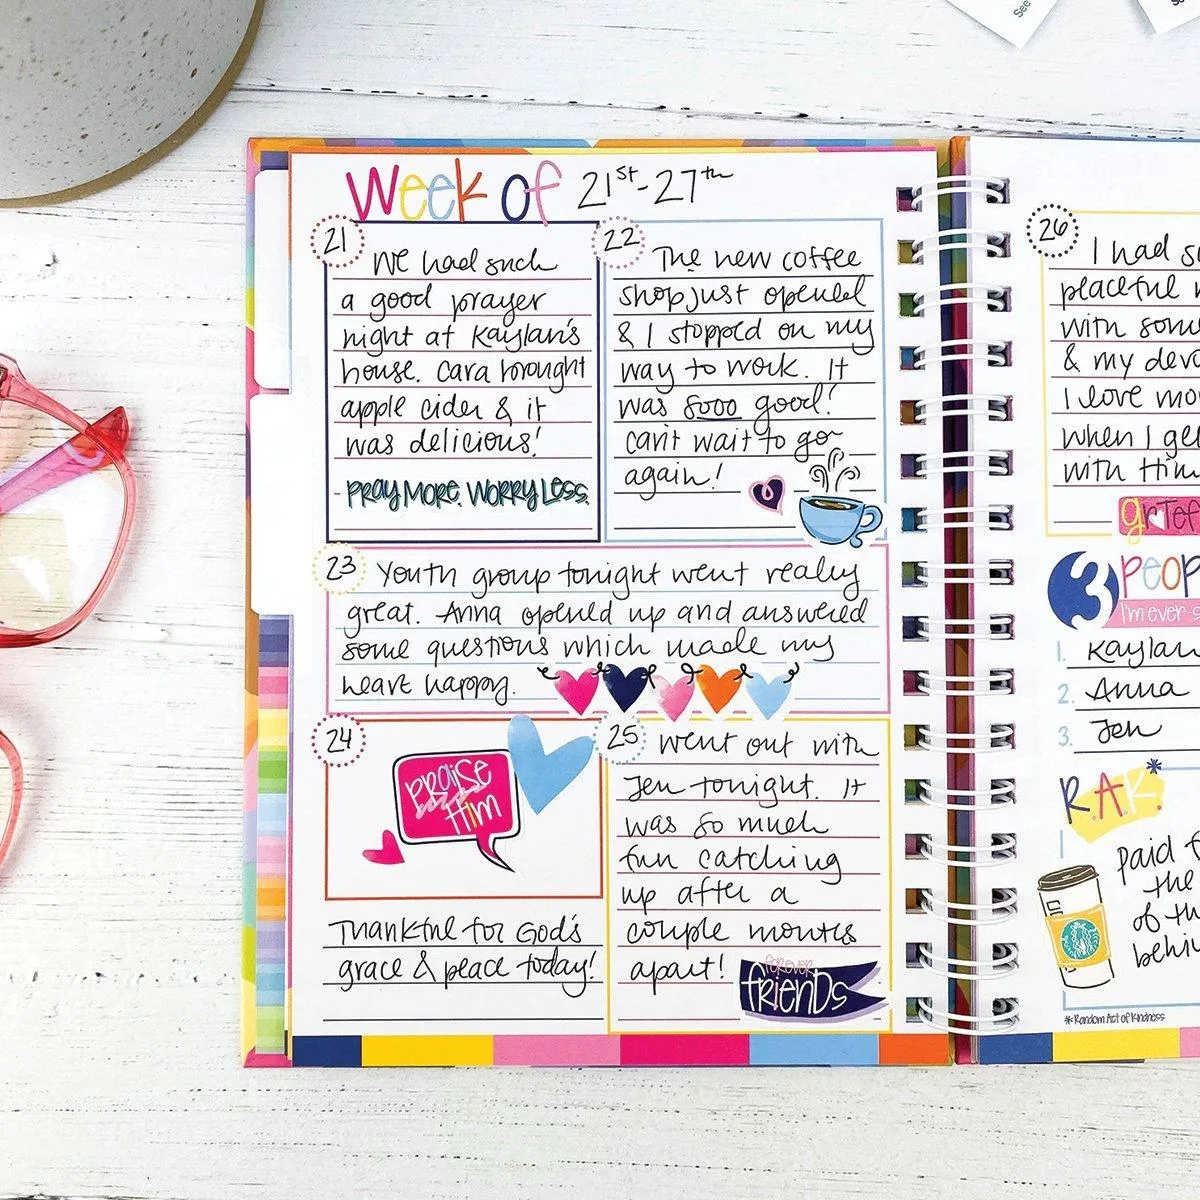 See
Week of 21st-27th
21
We had such
a good prayer
night at Kaylan's
house. Cara brought
apple cider & it
was delicious!
PRAY MORE. WORRY LESS.
22
The new coffee
shop just opened
& I stopped on my
way to work. It
was sooo good!
can't wait to go
again!
23
Youth group tonight went really
great. Anna opened up and answered
some questions which made my
heart happy.
24
PRAISE
Him
Thankful for God's
grace & peace today!
25
Went out with
Jen tonight. It
was so much
fun catching
up after a
couple months
apart!
FOREVER
friends
26
I had
peaceful
with
& my
I love
when I
with Him
3
I'm ever-
1. Kaylan
2. Anna
3. Jen
R.A.K.*
Paid
the
of
*Random Act of Kindness